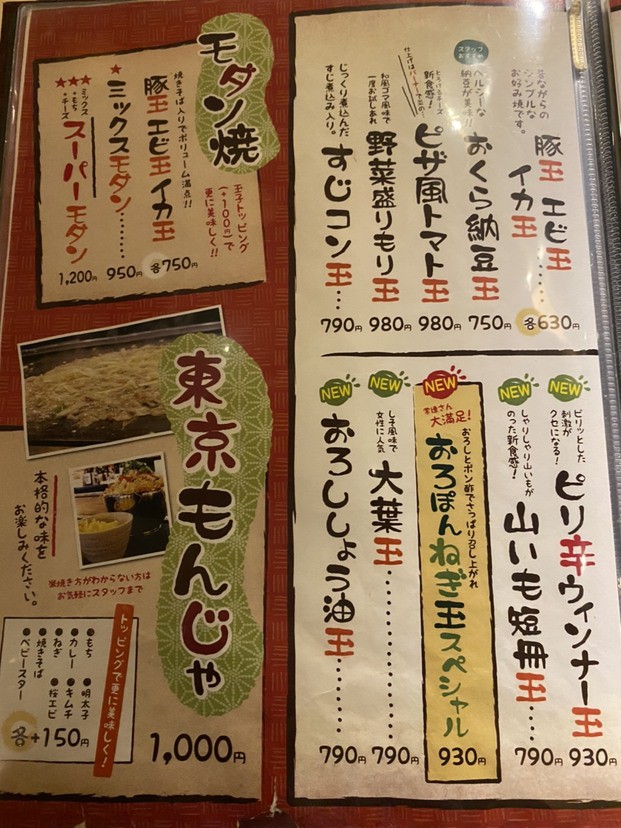 昔ながらの
シンプルな
お好み焼です。
豚玉 エビ玉
イカ玉
各630円
スタッフ
おすすめ
ヘルシーな
納豆が美味!!
おくら納豆玉
750円
仕上げはバーナーで
とろけるチーズ
新食感!
ピザ風トマト玉
980円
和風ゴマ風味で
一度お試しあれ
野菜盛りもり玉
980円
じっくり煮込んだ
すじ煮込み入り。
すじコン玉…
790円
NEW
ピリッとした
刺激が
クセになる!
ピリ辛ウィンナー玉
930円
NEW
しゃりしゃり山いもが
のった新食感!
山いも短冊玉
790円
NEW
常連さん
大満足!
おろしとポン酢でさっぱり召し上がれ
おろぽんねぎ玉スペシャル
930円
NEW
しそ風味で
女性に人気
大葉玉
790円
NEW
おろししょう油玉
790円
モダン焼
焼きそば入りでボリューム満点!!
豚玉 エビ玉 イカ玉
各750円
★
ミックスモダン
950円
★★★
ミックス
+もち
+チーズ
スーパーモダン
1,200円
玉子トッピング
(+100円)で
更に美味しく!!
東京もんじゃ
1,000円
本格的な味を
お楽しみください。
※焼き方がわからない方は
お気軽にスタッフまで
トッピングで更に美味しく!
●もち ●明太子
●カレー ●キムチ
●ねぎ ●桜エビ
●焼きそば
●ベビースター
各+150円